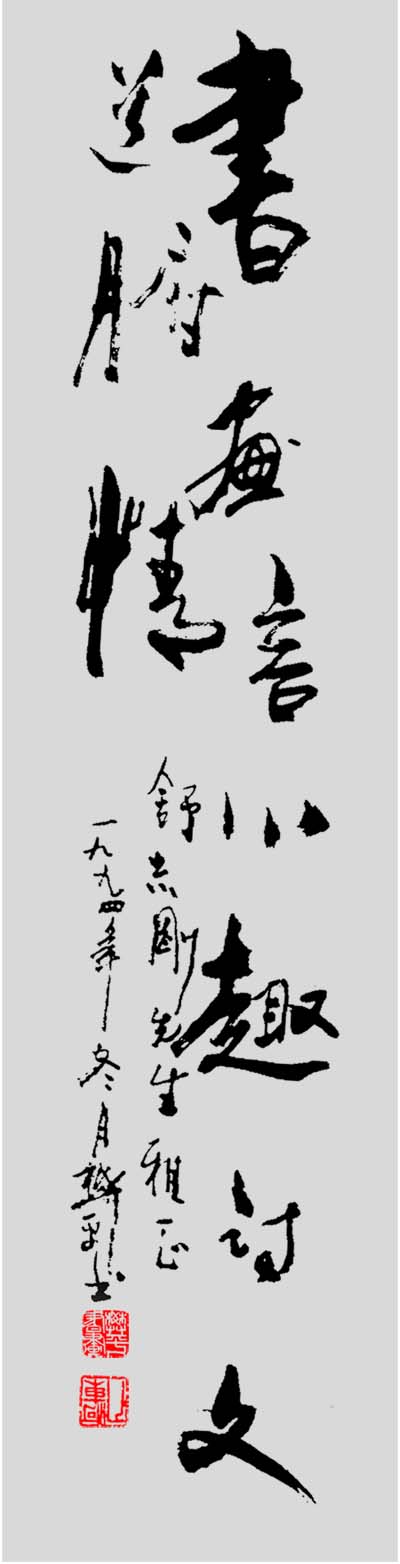 書畫言心趣詩文
道腑情
舒志剛先生雅正
一九九四年冬月书